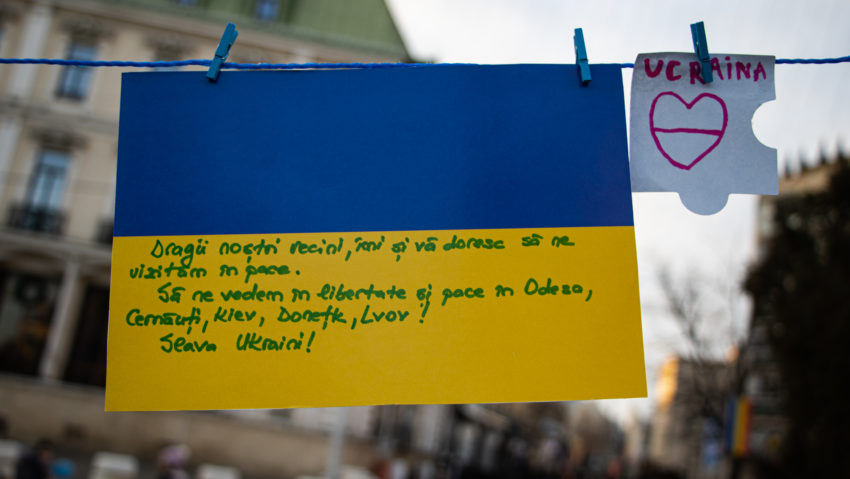 Dragii noștri vecini, îmi și vă doresc să ne
vizităm în pace.
Să ne vedem în libertate și pace în Odesa,
Cernăuți, Kiev, Donețk, Lvov!
Slava Ukraini!
UCRAINA